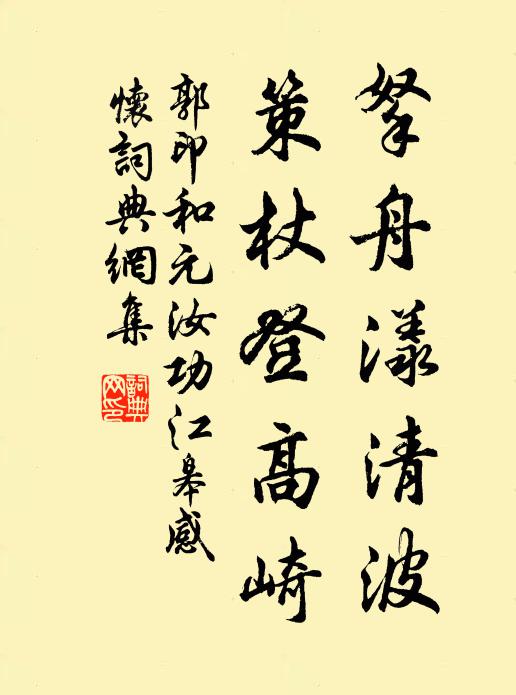 拏舟漾清波
策杖登高崎
郭印和元汝功江皋感
懷詞典網集
詞典
网印